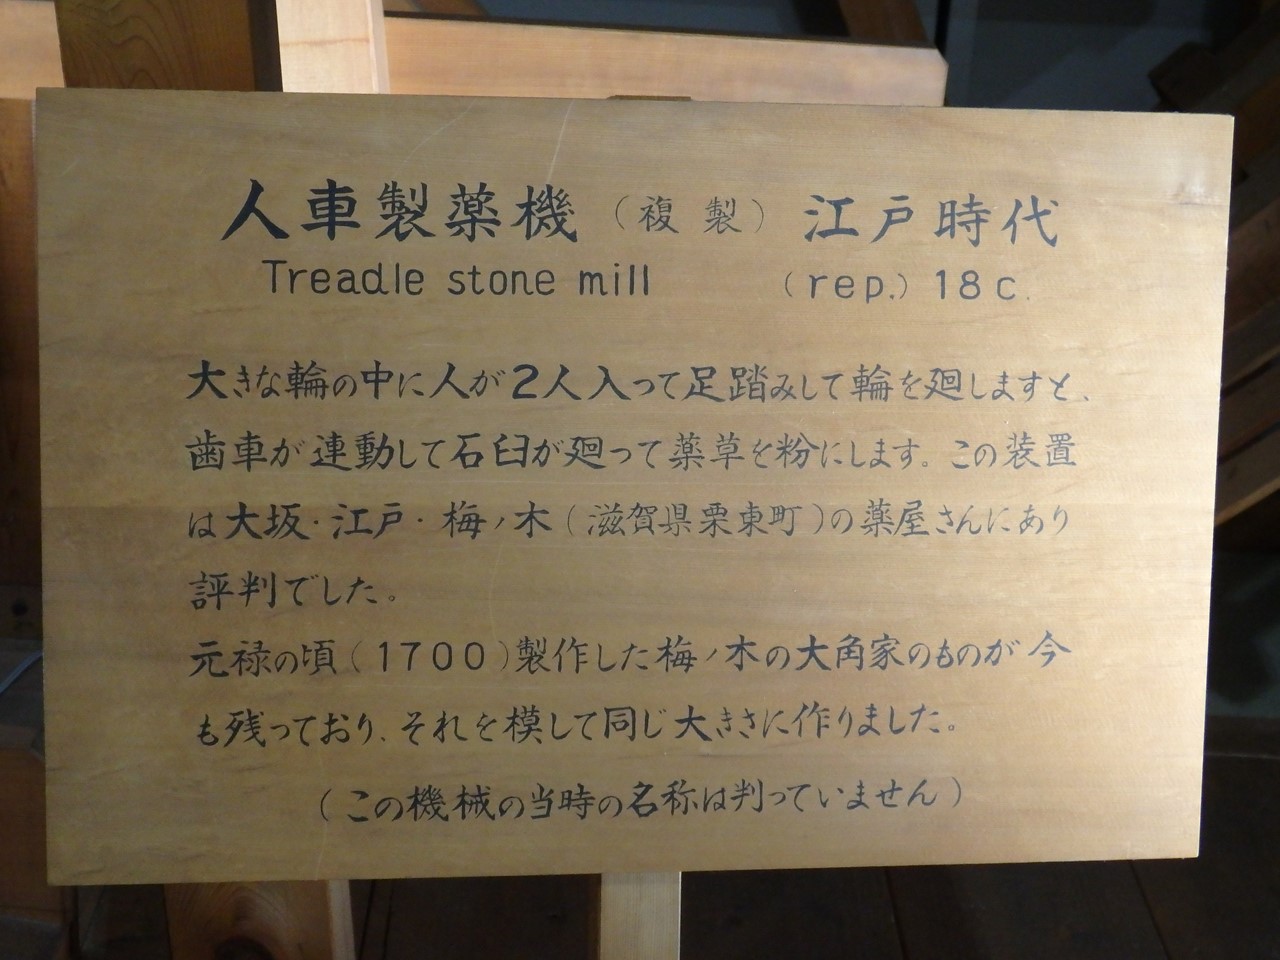 人車製薬機（複製）江戸時代
Treadle stone mill （rep.）18c.
大きな輪の中に人が2人入って足踏みして輪を廻しますと、
歯車が連動して石臼が廻って薬草を粉にします。この装置
は大坂・江戸・梅ノ木（滋賀県栗東町）の薬屋さんにあり
評判でした。
元禄の頃（1700）製作した梅ノ木の大角家のものが今
も残っており、それを模して同じ大きさに作りました。
（この機械の当時の名称は判っていません）